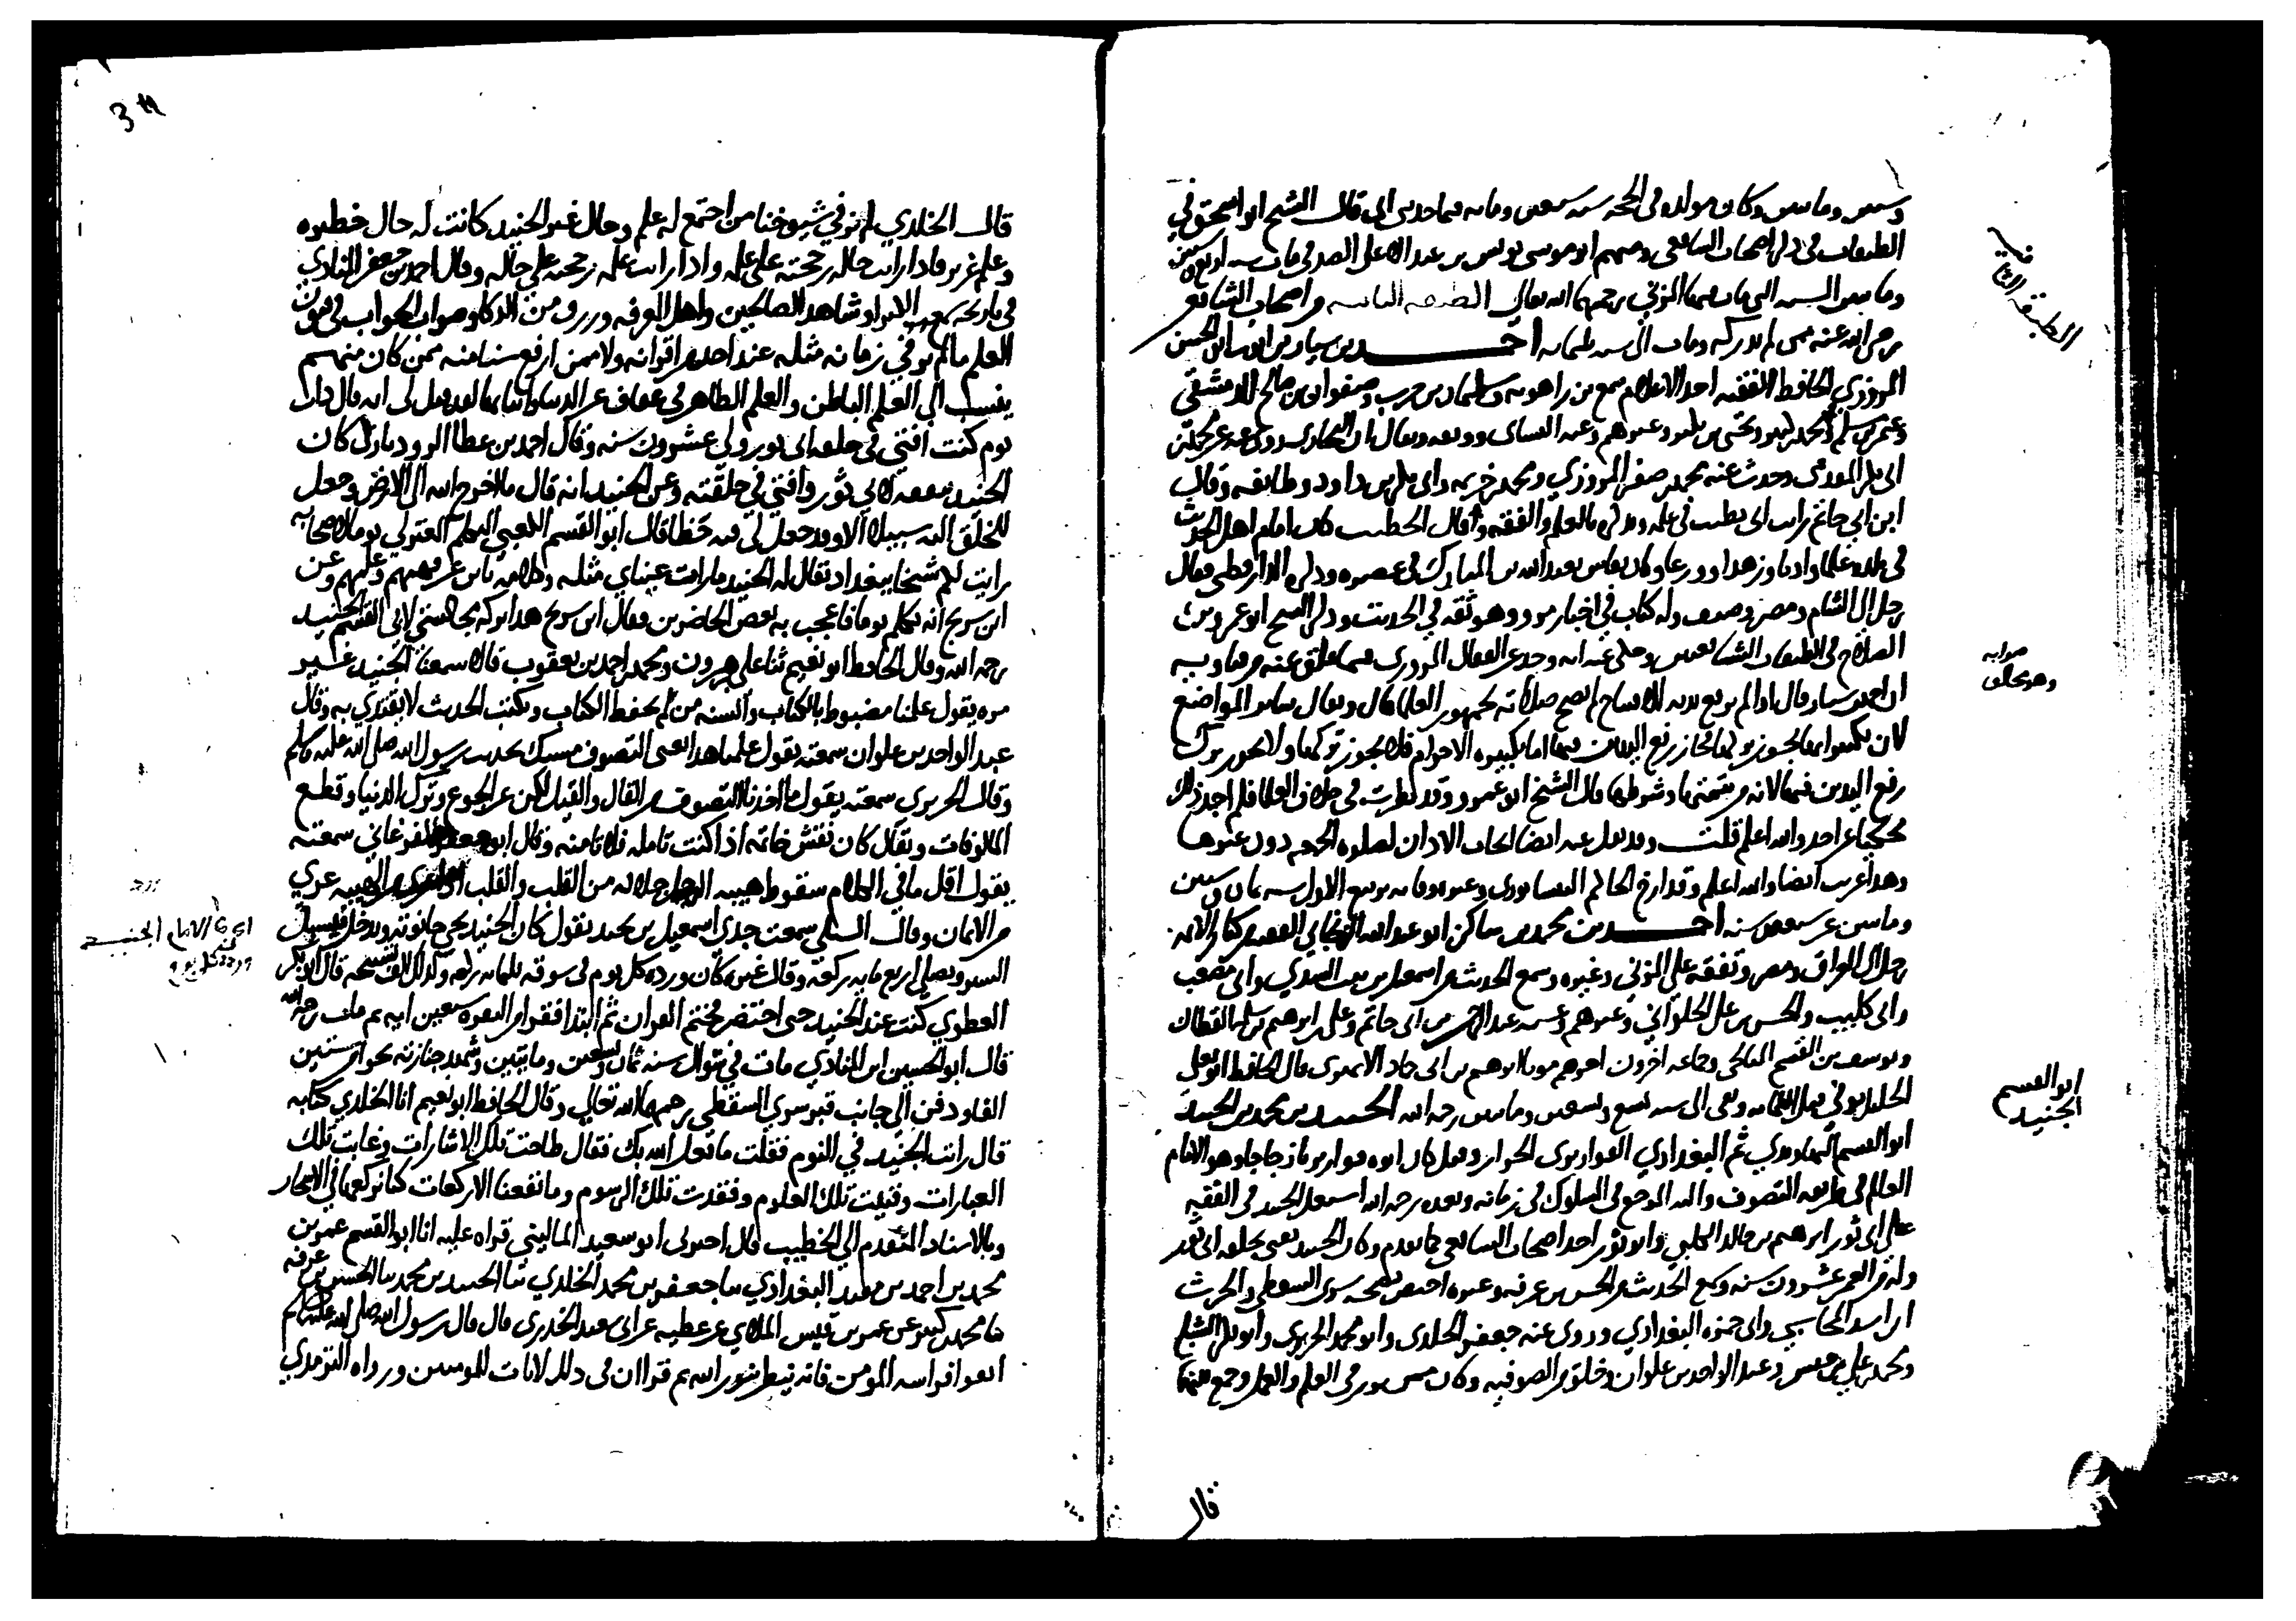 وستين ومائتين وكان مولده في الحجه سنه سبعين ومايه فيما حدثني ابي قال الشيخ ابو اسحق في
الطبقات في ذكر اصحاب الشافعي ومنهم ابو موسى يونس بن عبد الاعلى الصدفي مات سنه اربع وستين
ومايتين السنه التي مات فيها المزني رحمهما الله تعالى الطبقه الثانيه من اصحاب الشافعي
رضي الله عنه ممن لم يدركه ومات الى سنه ثلثمايه احمد بن سيار بن ايوب ابو الحسن
المروزي الحافظ الفقيه احد الاعلام سمع بن راهويه وسليمان بن حرب وصفوان بن صالح الدمشقي
وغيرهم وعنه النسائي ووثقه ويقال ان البخاري روى عنه عن محمد بن
ابي بكر المقدمي وحدث عنه محمد بن نصر المروزي ومحمد بن خزيمه وابو بكر بن داود وطايفه وقال
ابن ابي حاتم رايت ابي يطنب في مدحه ويذكره بالعلم والفقه وقال الخطيب كان امام اهل الحديث
في بلده علما وادبا وزهدا وورعا وكان يقاس بعبد الله بن المبارك في عصره وذكره الدارقطني فقال
رحل الى الشام ومصر وصنف وله كتاب في اخبار مرو وهو ثقه في الحديث وذكره الشيخ ابو عمرو بن
الصلاح في الطبقات
ان احمد بن سيار قال اذا لم يرفع يديه للافتتاح لم تصح صلاته لجمهور العلما قال ويقال سائر المواضع
لان تكبيراتها يجوز تركها فجاز رفع اليدين فيها اما تكبيره الاحرام فلا يجوز تركها ولا يجوز ترك
رفع اليدين فيها لانه من تتمتها وشرطها قال الشيخ ابو عمرو وقد نظرت في خلاف العلما فلم اجد ذلك
محكيا عن احد والله اعلم قلت وقد نقل عنه ايضا ايجاب الاذان لصلوه الجمعه دون غيرها
وهذا غريب ايضا والله اعلم وقد ارخ الحاكم النيسابوري وغيره وفاته بربيع الاول سنه ثمان وستين
ومايتين عن سبعين سنه احمد بن محمد بن ساكن ابو عبد الله الزنجاني الفقيه من كبار الائمه
رحل الى العراق ومصر وتفقه على المزني وغيره وسمع الحديث من اسمعيل بن بنت السدي وابي مصعب
وابي كريب والحسن بن علي الحلواني وغيرهم وعنه عبد الرحمن بن ابي حاتم وعلي بن ابرهيم بن سلمه القطان
ويوسف بن القسم الميانجي وجماعه اخرون اخرهم موتا ابرهيم بن ابي حماد الابهري قال الحافظ ابو يعلى
الخليلي توفي قبل الثلثمايه وبقي الى سنه تسع وتسعين ومايتين رحمه الله الجنيد بن محمد بن الجنيد
ابو القسم النهاوندي ثم البغدادي القواريري الخزاز وقيل كان ابوه قواريريا زجاجا وهو الامام
العالم في طريقه التصوف واليه المرجع في السلوك في زمانه وبعده رحمه الله اشتغل الجنيد في الفقه
على ابي ثور ابرهيم بن خالد الكلبي وابو ثور احد اصحاب الشافعي كما تقدم وكان الجنيد يفتي بحلقه ابي ثور
وله من العمر عشرون سنه وسمع الحديث من الحسن بن عرفه وغيره اختص بصحبه سري السقطي والحرث
بن اسد المحاسبي وابي حمزه البغدادي وروى عنه جعفر الخلدي وابو محمد الجريري وابو بكر الشبلي
ومحمد بن علي بن حبيش وعبد الواحد بن علوان وخلق من الصوفيه وكان ممن برز في العلم والعمل وجمع بينهما
قال
الطبقه الثانيه
صوابه
ابو القسم
الجنيد
قال الخلدي لم نر في شيوخنا من اجتمع له علم وحال غير الجنيد كانت له حال خطيره
وعلم غزير فاذا رايت حاله رجحته على علمه واذا رايت علمه رجحته على حاله وقال احمد بن جعفر المنادي
في تاريخه سمع الكثير وشاهد الصالحين واهل المعرفه ورزق من الذكا وصواب الجواب في فنون
العلم ما لم ير في زمانه مثله عند احد من اقرانه ولا ممن ارفع سنا منه ممن كان منهم
ينسب الى العلم الباطن والعلم الظاهر في عفاف عن الدنيا وابنائها لقد قيل لي انه قال ذات
يوم كنت افتي في حلقه ابي ثور ولي عشرون سنه وقال احمد بن عطا الروذباري كان
الجنيد يتفقه لابي ثور ويفتي في حلقته وعن الجنيد انه قال ما اخرج الله الى الارض وجعل
للخلق اليه سبيلا الا وقد جعل لي فيه حظا قال ابو القسم الكعبي المتكلم المعتزلي يوما لاصحابه
رايت لكم شيخا ببغداد يقال له الجنيد ما رات عيناي مثله
ابن سريج انه تكلم يوما فاعجب به بعض الحاضرين فقال ابن سريج هذا بركه مجالستي لابي القسم الجنيد
رحمه الله وقال الحافظ ابو نعيم ثنا علي بن هرون ومحمد بن احمد بن يعقوب قالا سمعنا الجنيد غير
مره يقول علمنا مضبوط بالكتاب والسنه من لم يحفظ الكتاب ويكتب الحديث لا يقتدى به وقال
عبد الواحد بن علوان سمعته يقول علمنا هذا يعني التصوف مشبك بحديث رسول الله صلى الله عليه وسلم
وقال الجريري سمعته يقول ما اخذنا التصوف عن القال والقيل لكن عن الجوع وترك الدنيا وقطع
المالوفات ويقال كان نقش خاتمه اذا كنت تامله فلا تامنه وقال ابو جعفر الفرغاني سمعته
يقول اقل ما في الكلام سقوط هيبه الرب جل جلاله من القلب والقلب اذا عري من الهيبه عري
من الايمان وقال السلمي سمعت جدي اسمعيل بن نجيد يقول كان الجنيد يجي حانوته ويدخل فيسبل
الستر ويصلي اربع مايه ركعه وقال غيره كان ورده كل يوم في سوقه ثلثمايه ركعه وكذا الف تسبيحه قال ابو بكر
العطوي كنت عند الجنيد حين احتضر فختم القران ثم ابتدا فقرا من البقره سبعين ايه ثم مات رحمه الله
قال ابو الحسين ابن المنادي مات في شوال سنه ثمان وتسعين ومايتين وشهد جنازته نحو من ستين
الفا ودفن الى جانب قبر سري السقطي رحمهما الله تعالى وقال الحافظ ابو نعيم انا الخلدي كتابه
قال رايت الجنيد في النوم فقلت ما فعل الله بك فقال طاحت تلك الاشارات وغابت تلك
العبارات وفنيت تلك العلوم ونفدت تلك الرسوم وما نفعنا الا ركعات كنا نركعها في الاسحار
وبالاسناد المتقدم الى الخطيب قال اخبرني ابو سعيد الماليني قراه عليه انا ابو القسم عمر بن
محمد بن احمد بن مقبل البغدادي ثنا جعفر بن محمد الخلدي ثنا الجنيد بن محمد ثنا الحسن بن عرفه
ثنا محمد بن كثير عن عمرو بن قيس الملائي عن عطيه عن ابي سعيد الخدري قال قال رسول الله صلى الله عليه وسلم
اتقوا فراسه المومن فانه ينظر بنور الله ثم قرا ان في ذلك لايات للمتوسمين ورواه الترمذي